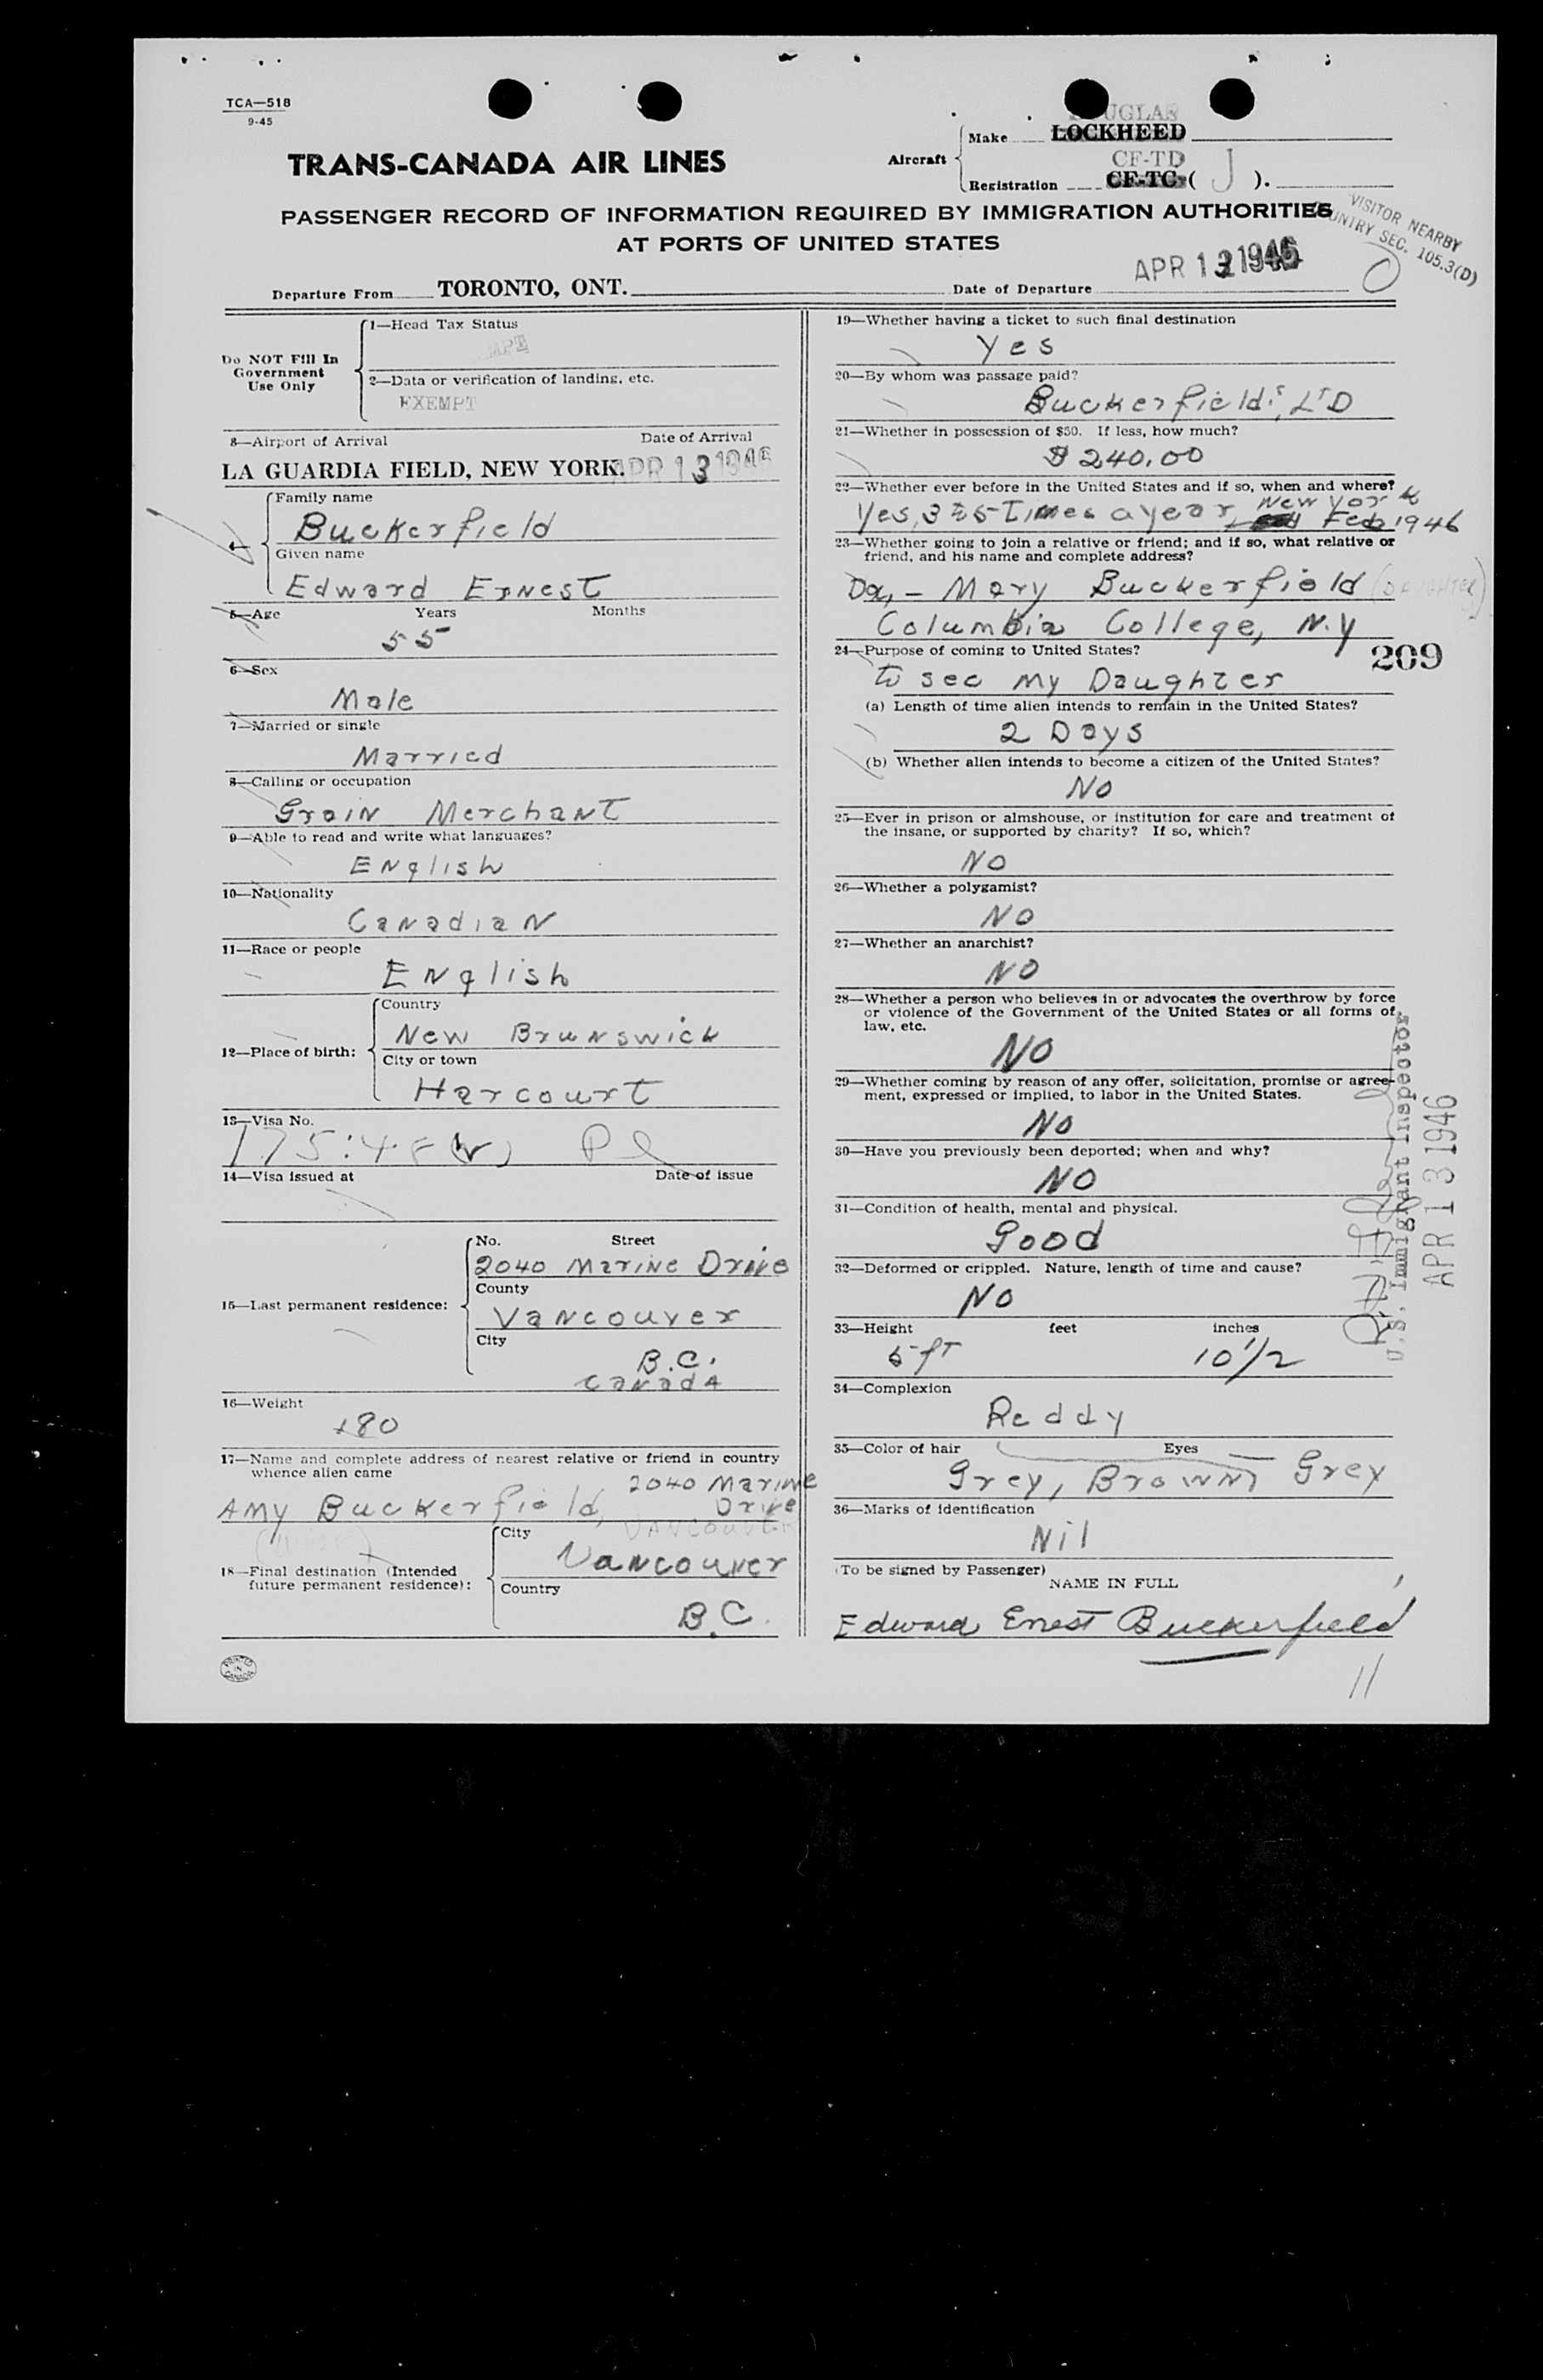 TCA—518
9-45
TRANS-CANADA AIR LINES
Aircraft
DOUGLAS
Make LOCKHEED
CF-TD
Registration CF-TC-( J ).
PASSENGER RECORD OF INFORMATION REQUIRED BY IMMIGRATION AUTHORITIES
AT PORTS OF UNITED STATES
VISITOR NEARBY
COUNTRY SEC. 105.3(D)
Departure From TORONTO, ONT.
Date of Departure APR 13 1946
Do NOT Fill In
Government
Use Only
1—Head Tax Status
2—Data or verification of landing, etc.
EXEMPT
3—Airport of Arrival Date of Arrival
LA GUARDIA FIELD, NEW YORK. APR 13 1946
4—
Family name
Buckerfield
Given name
Edward Ernest
5—Age Years Months
55
6—Sex
Male
7—Married or single
Married
8—Calling or occupation
Grain Merchant
9—Able to read and write what languages?
English
10—Nationality
Canadian
11—Race or people
English
12—Place of birth:
Country
New Brunswick
City or town
Harcourt
13—Visa No.
14—Visa issued at Date of issue
15—Last permanent residence:
No. Street
2040 Marine Drive
County
Vancouver
City
B.C.
Canada
16—Weight
180
17—Name and complete address of nearest relative or friend in country
whence alien came
2040 Marine
Amy Buckerfield, Drive
VANCOUVER
18—Final destination (Intended
future permanent residence):
City
Vancouver
Country
B.C.
PRINTED IN CANADA
19—Whether having a ticket to such final destination
Yes
20—By whom was passage paid?
Buckerfield's, LTD
21—Whether in possession of $50. If less, how much?
$240.00
22—Whether ever before in the United States and if so, when and where?
Yes, 3 to 5 Times a year, New York
Feb 1946
23—Whether going to join a relative or friend; and if so, what relative or
friend, and his name and complete address?
Da,- Mary Buckerfield (DAUGHTER)
Columbia College, N.Y
24—Purpose of coming to United States?
209
to see my Daughter
(a) Length of time alien intends to remain in the United States?
2 Days
(b) Whether alien intends to become a citizen of the United States?
No
25—Ever in prison or almshouse, or institution for care and treatment of
the insane, or supported by charity? If so, which?
No
26—Whether a polygamist?
No
27—Whether an anarchist?
No
28—Whether a person who believes in or advocates the overthrow by force
or violence of the Government of the United States or all forms of
law, etc.
No
29—Whether coming by reason of any offer, solicitation, promise or agree-
ment, expressed or implied, to labor in the United States.
No
30—Have you previously been deported; when and why?
No
31—Condition of health, mental and physical.
Good
32—Deformed or crippled. Nature, length of time and cause?
No
33—Height feet inches
5 ft 10 1/2
34—Complexion
Reddy
35—Color of hair Eyes
Grey, Brown Grey
36—Marks of identification
Nil
(To be signed by Passenger)
NAME IN FULL
Edward Ernest Buckerfield
11
U.S. Immigrant Inspector
APR 13 1946